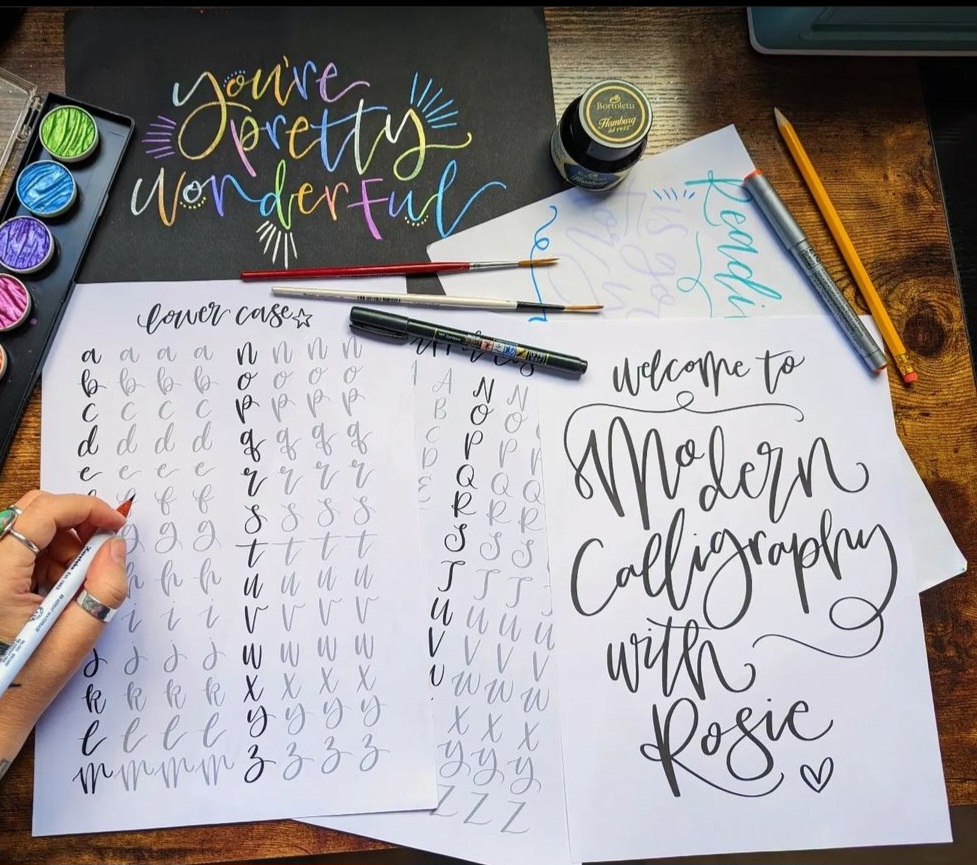 you're
pretty
wonderful
Bortoletti
Hamburg
lower case
a a a a n n n n
b b b b o o o o
c c c c p p p p
d d d d q q q q
e e e e r r r r
f f f s s s s
g g g t t t t
h h h u u u u
i i i v v v v
j j j j w w w w
k k k k x x x x
l l l l y y y y
m m m m z z z z
A N N
B O O
C P P
D Q Q Q
E R R R
S S S
T T T
U U U
V V V
W W W
X X X
Y Y Y
Z Z Z
welcome to
Modern
Calligraphy
with
Rosie